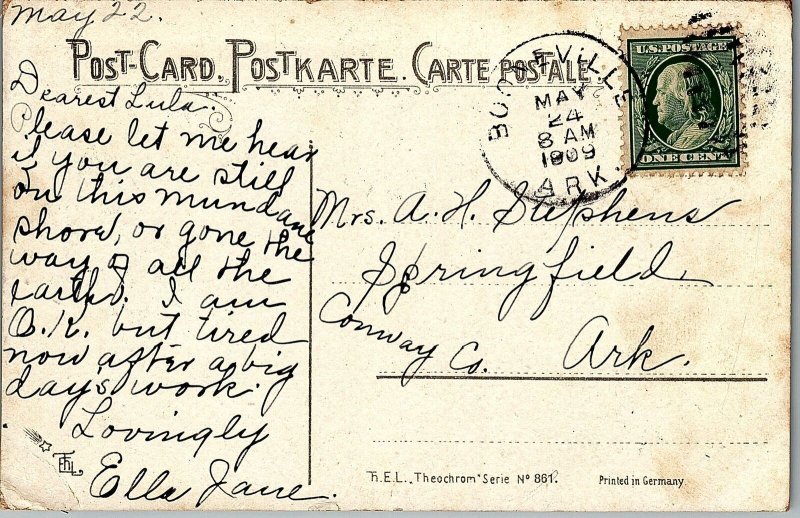 May 22.
POST-CARD. POSTKARTE. CARTE POSTALE
Dearest Lula.
Please let me hear
if you are still
on this mundane
shore, or gone the
way of all the
earth. I am
O.K. but tired
now after a big
day's work.
Lovingly
Ella Jane.
BOONEVILLE
MAY
24
8 AM
1909
ARK.
U.S. POSTAGE
ONE CENT
Mrs. A. H. Stephens
Springfield,
Conway Co. Ark.
T.H.E.L. „Theochrom" Serie No 861.
Printed in Germany.